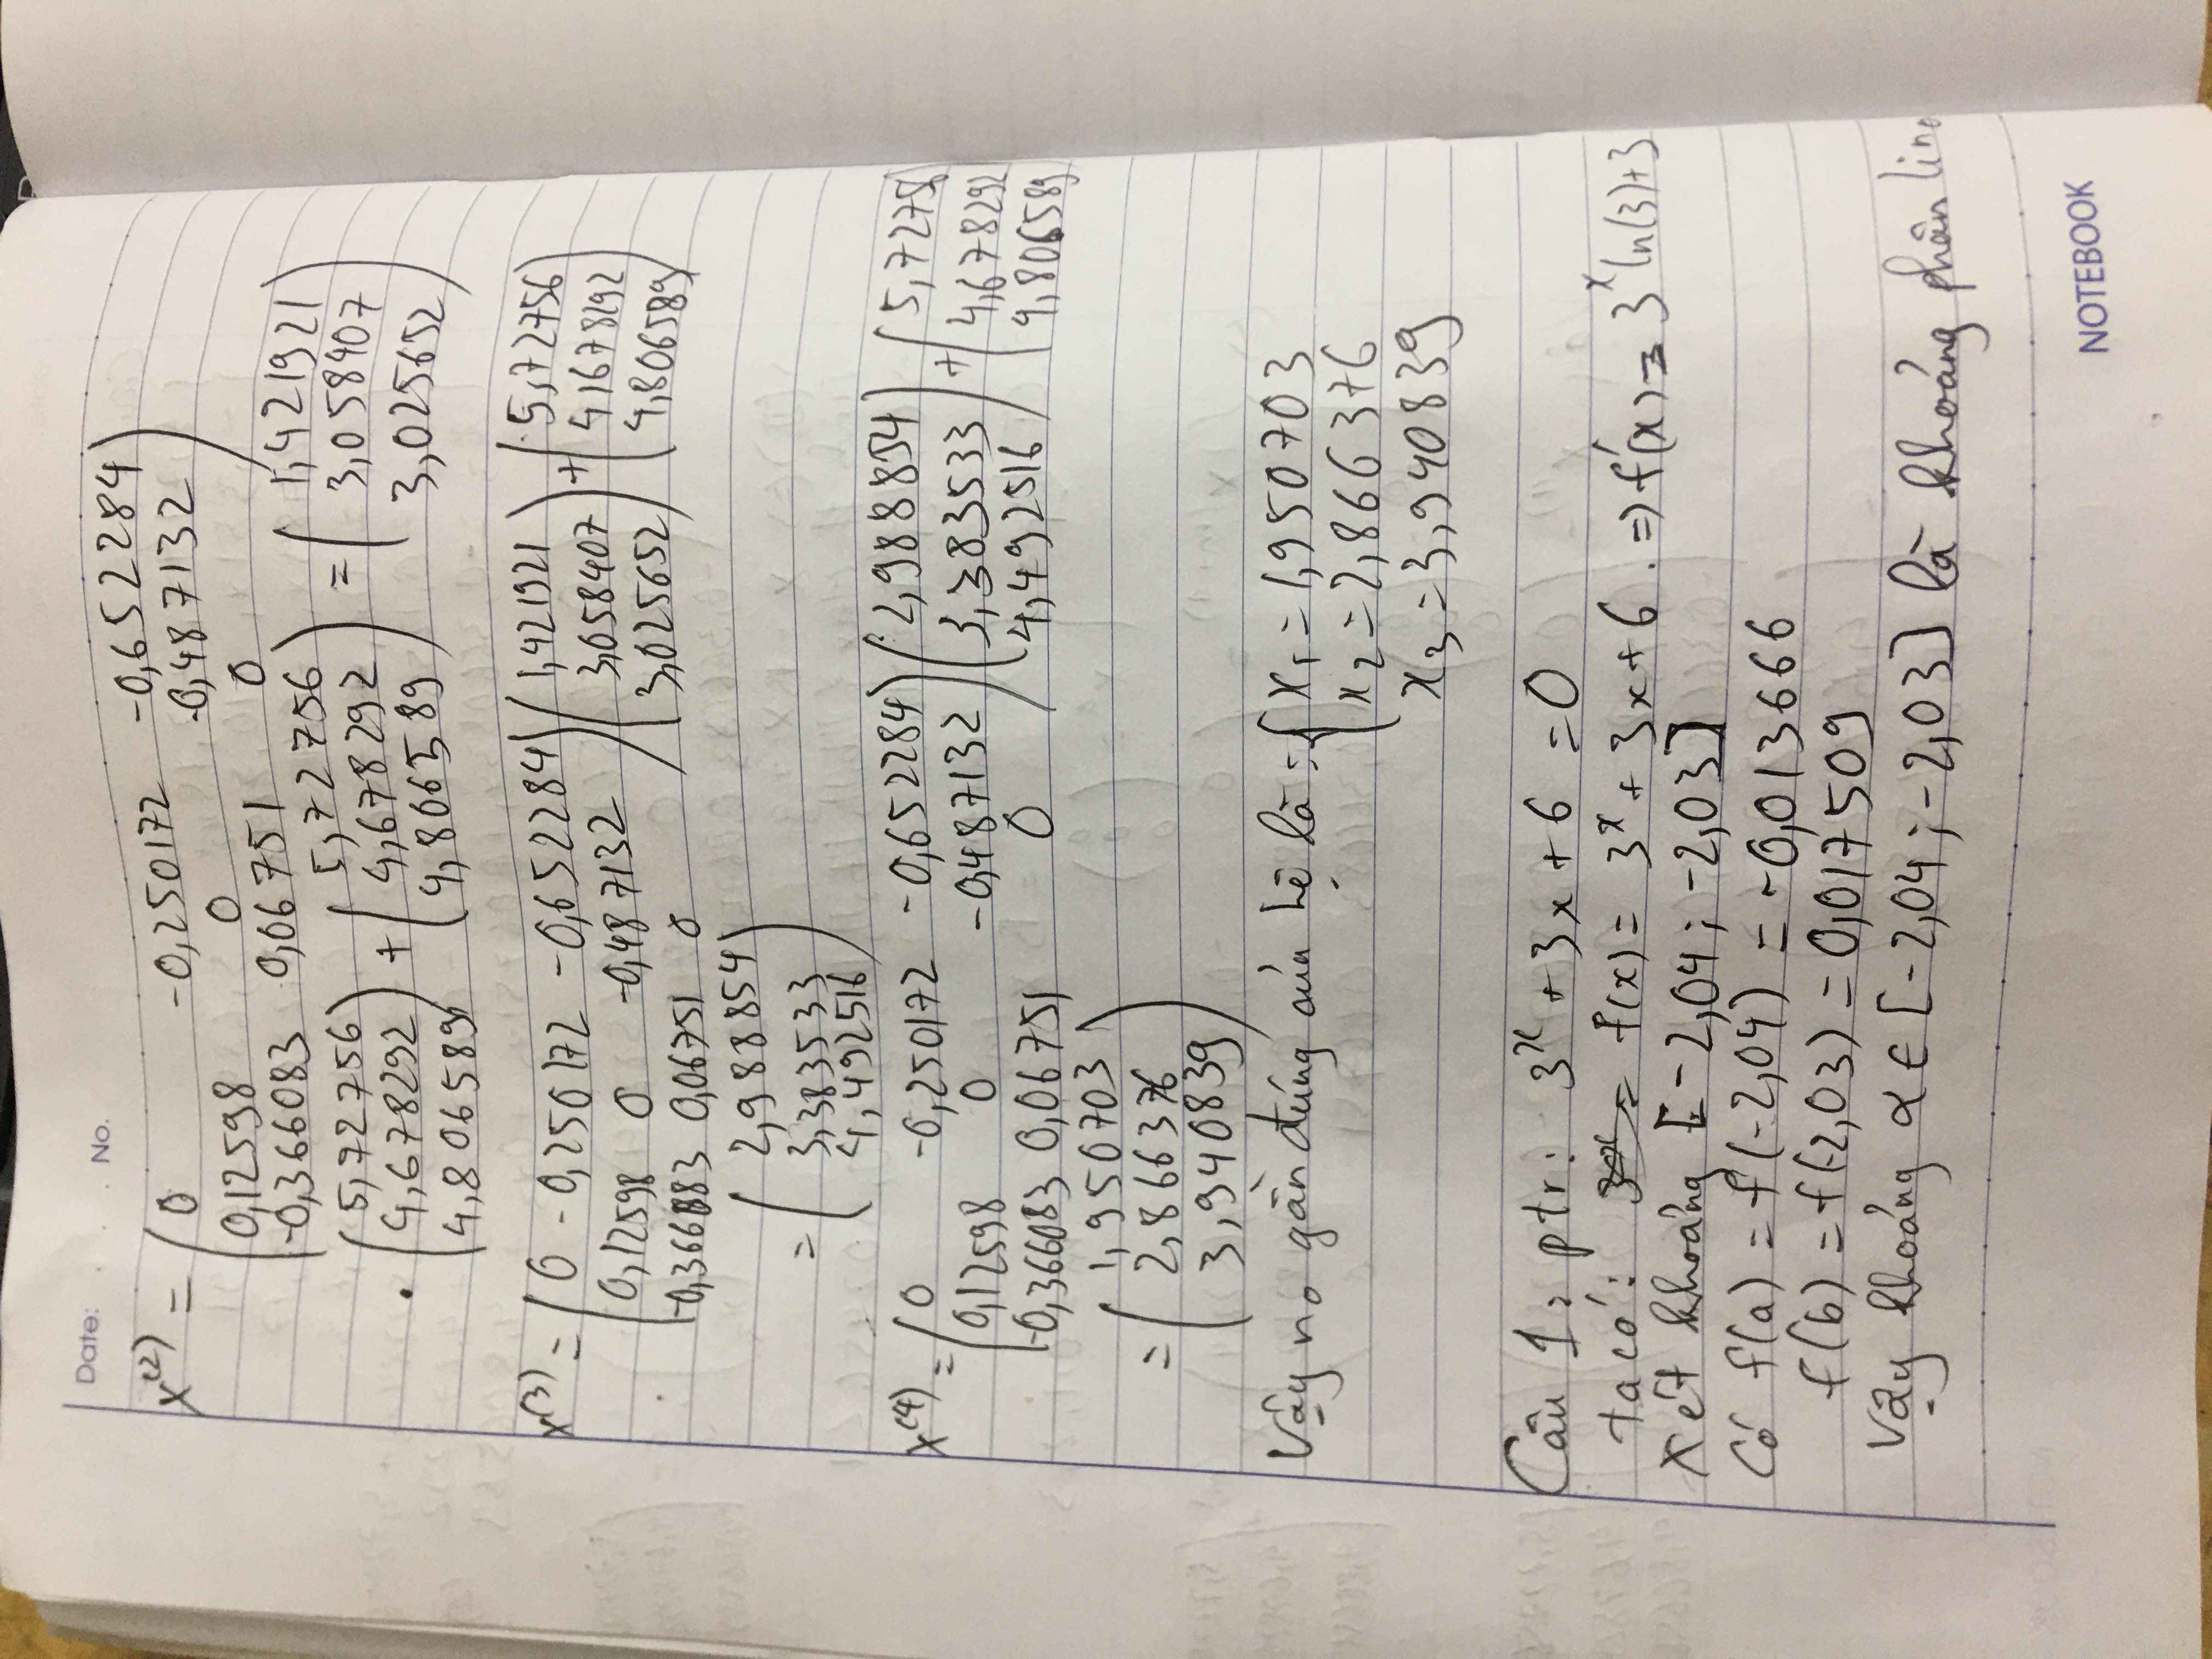 Date: . . . No.
x⁽²⁾ = ( 0 -0,250172 -0,652284
0,12598 0 -0,487132
-0,366083 0,06751 0 )
· ( 5,72756 4,678292 4,806589 ) + ( 5,72756 4,678292 4,806589 ) = ( 1,421921 3,058407 3,025652 )
x⁽³⁾ = ( 0 -0,250172 -0,652284 ) ( 1,421921 ) + ( 5,72756
0,12598 0 -0,487132 3,058407 4,678292
-0,366083 0,06751 0 3,025652 4,806589 )
= ( 2,988854
3,383533
4,492516 )
x⁽⁴⁾ = ( 0 -0,250172 -0,652284 ) ( 2,988854 ) + ( 5,72756
0,12598 0 -0,487132 3,383533 4,678292
-0,366083 0,06751 0 4,492516 4,806589
= ( 1,950703
2,866376
3,940839 )
Vậy no gần đúng của hệ là : { x₁ = 1,950703
x₂ = 2,866376
x₃ = 3,940839
Câu 1: ptr: 3ˣ + 3x + 6 = 0
ta có: f(x) = 3ˣ + 3x + 6 . => f'(x) = 3ˣ ln(3) + 3
Xét khoảng [-2,04 ; -2,03]
Có f(a) = f(-2,04) = -0,013666
f(b) = f(-2,03) = 0,017509
Vậy khoảng α ∈ [-2,04 ; -2,03] là khoảng phân li no
NOTEBOOK